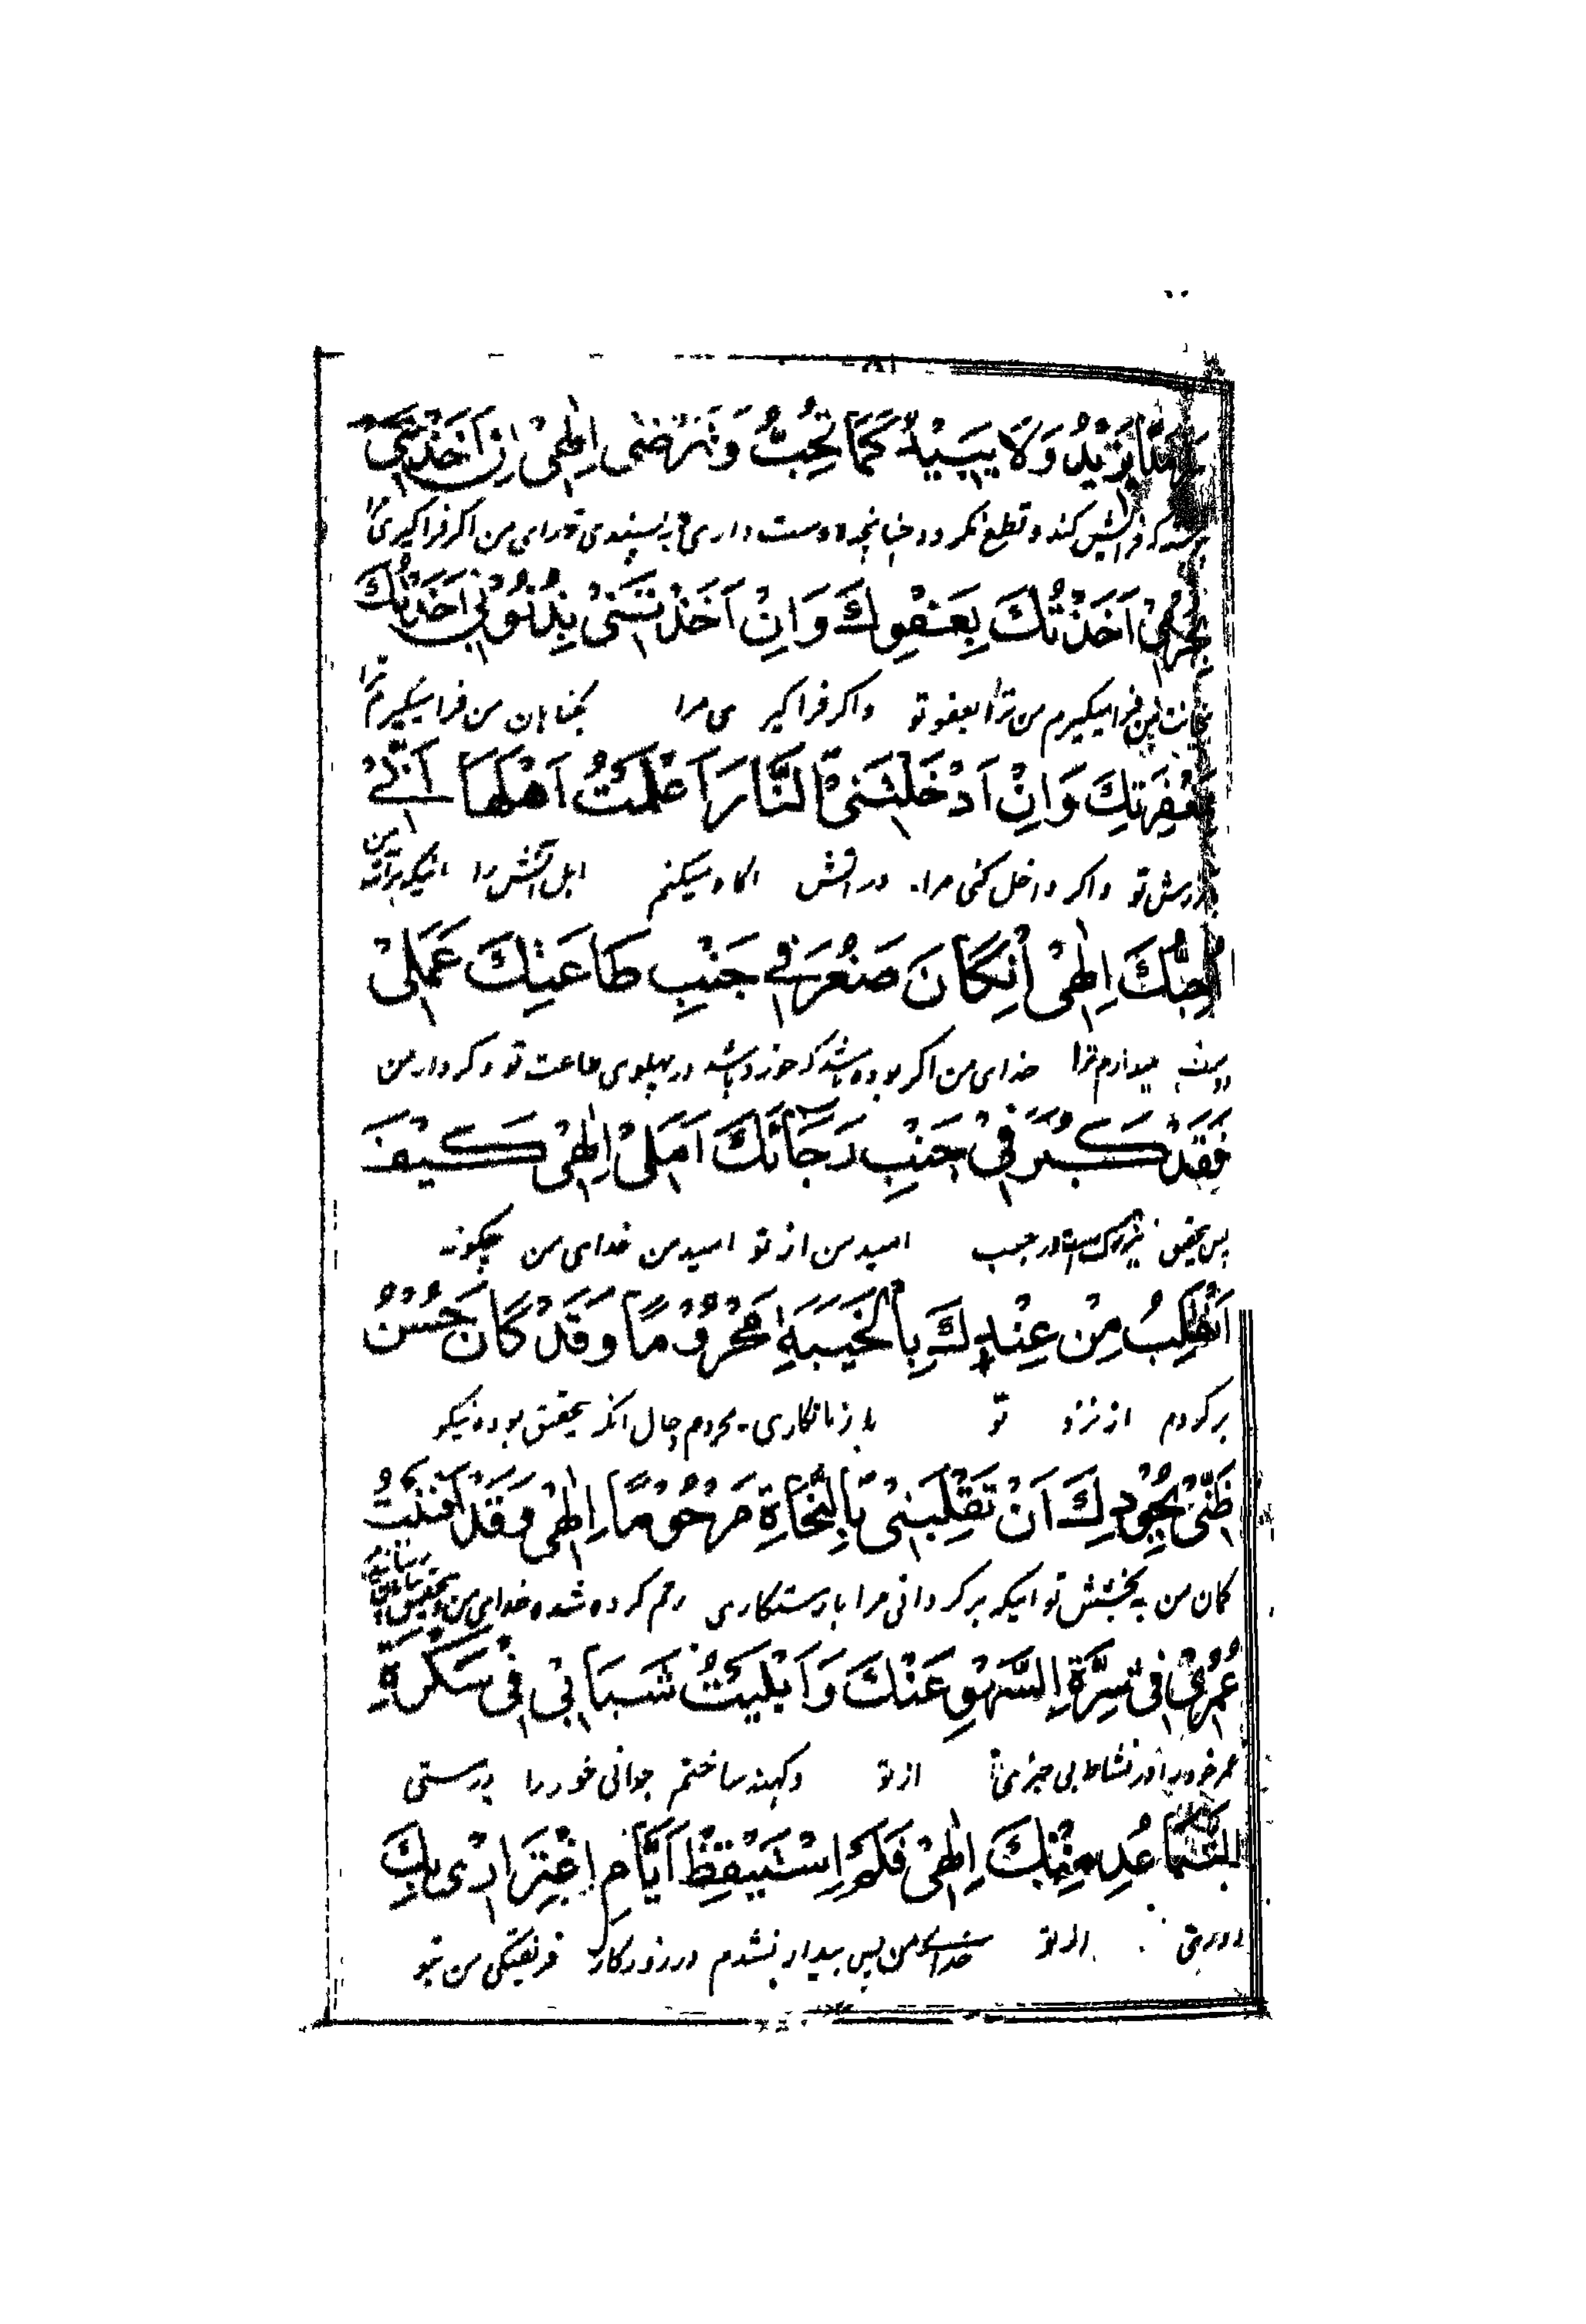 سَرْمَدًا يَزِيْدُ وَلَا يَبِيْدُ كَمَا تُحِبُّ وَتَرْضٰى اِلٰهِىْ اِنْ اَخَذْتَنِىْ
كند و قطع نكردد چنانچه دوست دارى و به پسندى خداى من اكر فراكيرى
بِجُرْمِىْ اَخَذْتُكَ بِعَفْوِكَ وَاِنْ اَخَذْتَنِىْ بِذُنُوْبِىْ اَخَذْتُكَ
فرا ميكيرم من ترا بعفو تو واكر فراكير ى مرا بكناهان من فرا ميكيرم ترا
بِمَغْفِرَتِكَ وَاِنْ اَدْخَلْتَنِىْ النَّارَ اَعْلَمْتُ اَهْلَهَا اَنِّىْ
تو واكر داخل كنى مرا در اتش اكاه ميكنم اهل اتش را انيكه بدرستى من
اُحِبُّكَ اِلٰهِىْ اِنْكَانَ صَغُرَ فِىْ جَنْبِ طَاعَتِكَ عَمَلِىْ
دوست ميدارم ترا خداى من اكر بوده باشد كه خورد باشد در پهلوى طاعت تو كردار من
فَقَدْ كَبُرَ فِىْ جَنْبِ رَجَائِكَ اَمَلِىْ اِلٰهِىْ كَيْفَ
پس بتحقيق بزرك است در جنب اميد من از تو اميد من خداى من چكونه
اَنْقَلِبُ مِنْ عِنْدِكَ بِالْخَيْبَةِ مَحْرُوْمًا وَقَدْ كَانَ حُسْنُ
بركردم از نزد تو با زيانكارى محروم و حال انكه بتحقيق بوده نيكو
ظَنِّىْ بِجُوْدِكَ اَنْ تَقْلِبَنِىْ بِالنَّجَاةِ مَرْحُوْمًا اِلٰهِىْ وَقَدْ اَفْنَيْتُ
كمان من به بخشش تو اينكه بركردانى مرا با رستكارى رحم كرده شده خداى من و بتحقيق
عُمْرِىْ فِىْ شِرَّةِ السَّهْوِ عَنْكَ وَاَبْلَيْتُ شَبَابِىْ فِىْ سَكْرَةِ
عمر خود را در نشاط بى خبرى از تو وكهنه ساختم جوانى خود را در مستى
التَّبَاعُدِ مِنْكَ اِلٰهِىْ فَلَمْ اِسْتَيْقِظْ اَيَّامِ اِغْتِرَارِىْ بِكَ
دورى از تو خداى من پس بيدار نشدم در روزكار فريفتكى من بتو